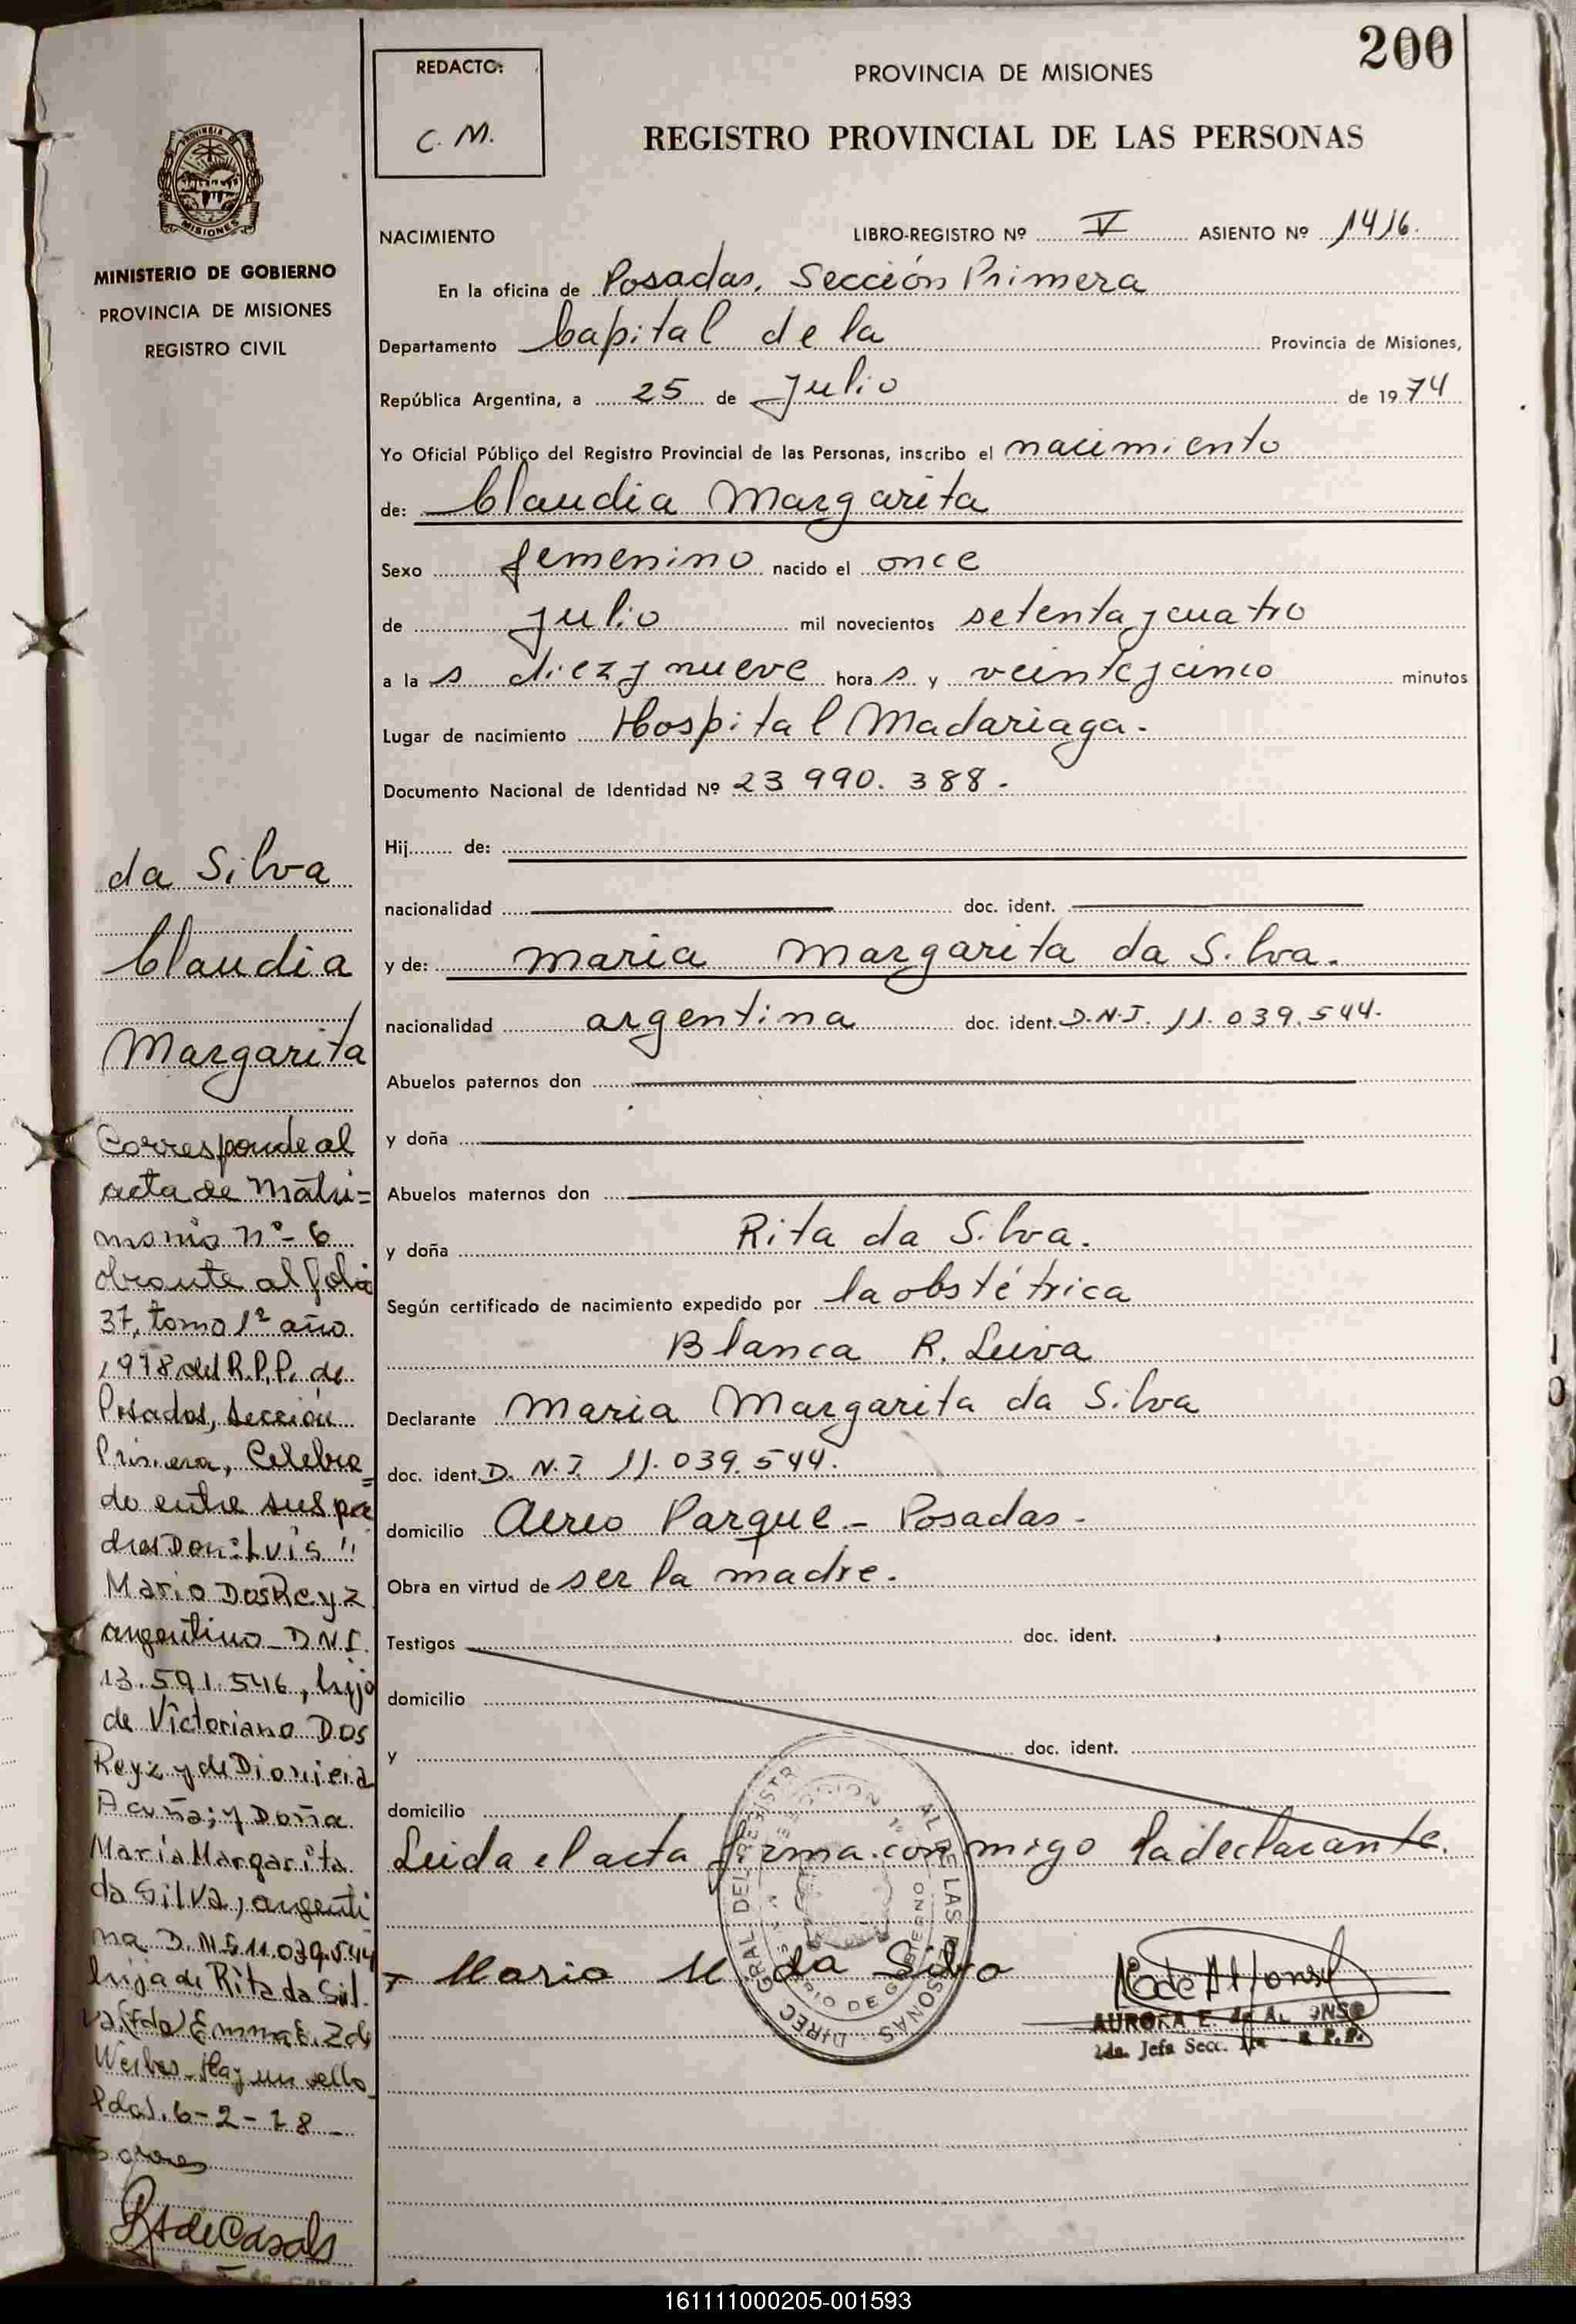 200
REDACTO:
C. M.
PROVINCIA DE MISIONES
REGISTRO PROVINCIAL DE LAS PERSONAS
PROVINCIA DE
MISIONES
MINISTERIO DE GOBIERNO
PROVINCIA DE MISIONES
REGISTRO CIVIL
NACIMIENTO LIBRO-REGISTRO Nº V ASIENTO Nº 1416.
En la oficina de Posadas, Sección Primera
Departamento Capital de la Provincia de Misiones,
República Argentina, a 25 de Julio de 1974
Yo Oficial Público del Registro Provincial de las Personas, inscribo el nacimiento
de: Claudia Margarita
Sexo femenino nacido el once
de julio mil novecientos setenta y cuatro
a la s diez y nueve hora s y veinte y cinco minutos
Lugar de nacimiento Hospital Madariaga.
Documento Nacional de Identidad Nº 23 990. 388.
Hij de:
nacionalidad doc. ident.
y de: Maria Margarita da Silva.
nacionalidad argentina doc. ident. D.N.I. 11.039.544.
Abuelos paternos don
y doña
Abuelos maternos don
y doña Rita da Silva.
Según certificado de nacimiento expedido por la obstétrica
Blanca R. Leiva
Declarante Maria Margarita da Silva
doc. ident. D. N.I. 11.039.544.
domicilio Aereo Parque - Posadas.
Obra en virtud de ser la madre.
Testigos doc. ident.
domicilio
y doc. ident.
domicilio
Leida el acta firma conmigo la declarante.
Maria M da Silva
AURORA E. de AL ONSO
2da. Jefa Secc. 1ra - R.P.P.
da Silva
Claudia
Margarita
Corresponde al
acta de Matri=
monio nº 6
obrante al folio
37, tomo 1º año
1978 del R.P.P. de
Posadas, Sección
Primera, Celebra=
do entre sus pa
dres Don: Luis
Mario DosReyz
argentino D.N.I.
13.591.546, hijo
de Victoriano Dos
Reyz y de Dionicia
Acuña; y Doña
María Margarita
da Silva, argenti
na D.N.I. 11.039.544
hija de Rita da Sil
va. (Fdo) Emma E. Z de
Weibes. Hay un sello
Pdas. 6-2-78
161111000205-001593